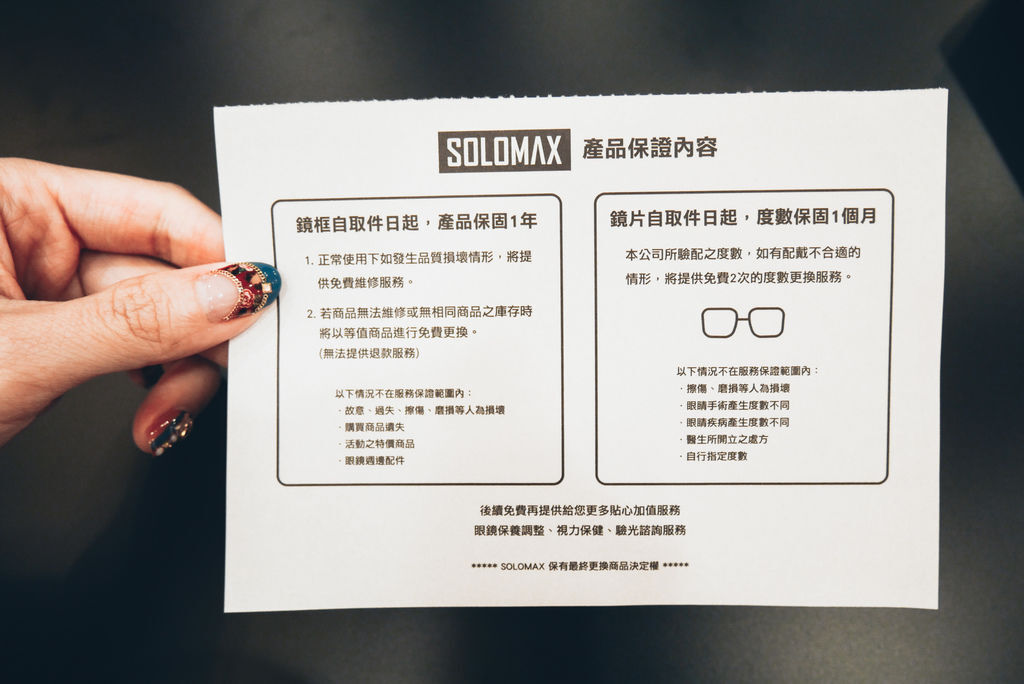 SOLOMAX 產品保證內容
鏡框自取件日起，產品保固1年
1. 正常使用下如發生品質損壞情形，將提
供免費維修服務。
2. 若商品無法維修或無相同商品之庫存時
將以等值商品進行免費更換。
(無法提供退款服務)
以下情況不在服務保證範圍內：
·故意、過失、擦傷、磨損等人為損壞
·購買商品遺失
·活動之特價商品
·眼鏡週邊配件
鏡片自取件日起，度數保固1個月
本公司所驗配之度數，如有配戴不合適的
情形，將提供免費2次的度數更換服務。
以下情況不在服務保證範圍內：
·擦傷、磨損等人為損壞
·眼睛手術產生度數不同
·眼睛疾病產生度數不同
·醫生所開立之處方
·自行指定度數
後續免費再提供給您更多貼心加值服務
眼鏡保養調整、視力保健、驗光諮詢服務
***** SOLOMAX 保有最終更換商品決定權 *****